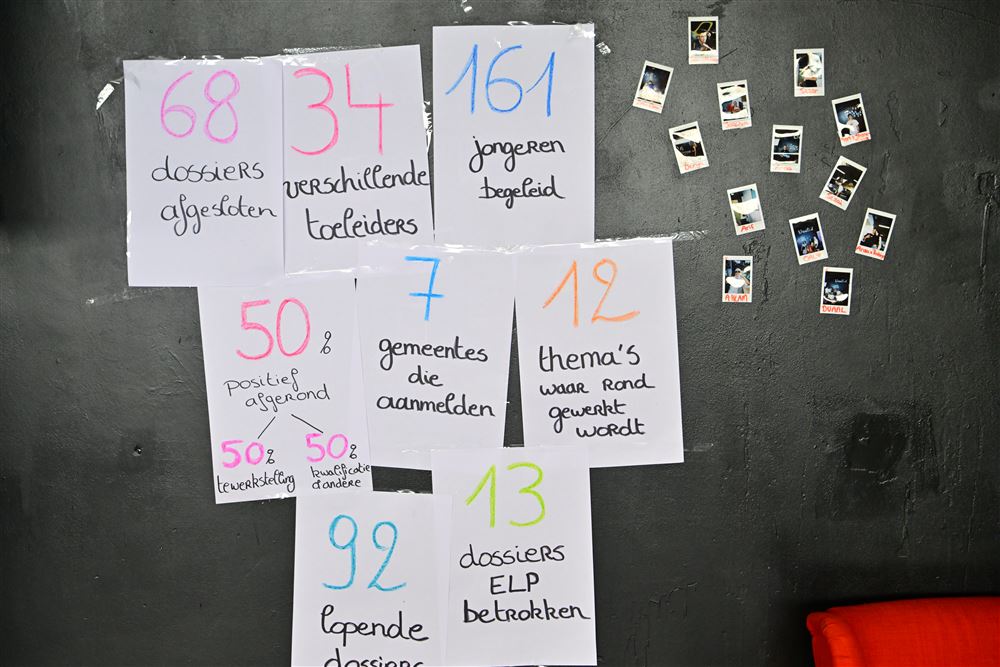 68
dossiers
afgesloten
34
verschillende
toeleiders
161
jongeren
begeleid
50%
positief
afgerond
50%
tewerkstelling
50%
kwalificatie
&andere
7
gemeentes
die
aanmelden
12
thema's
waar rond
gewerkt
wordt
92
lopende
dossiers
13
dossiers
ELP
betrokken
Arif